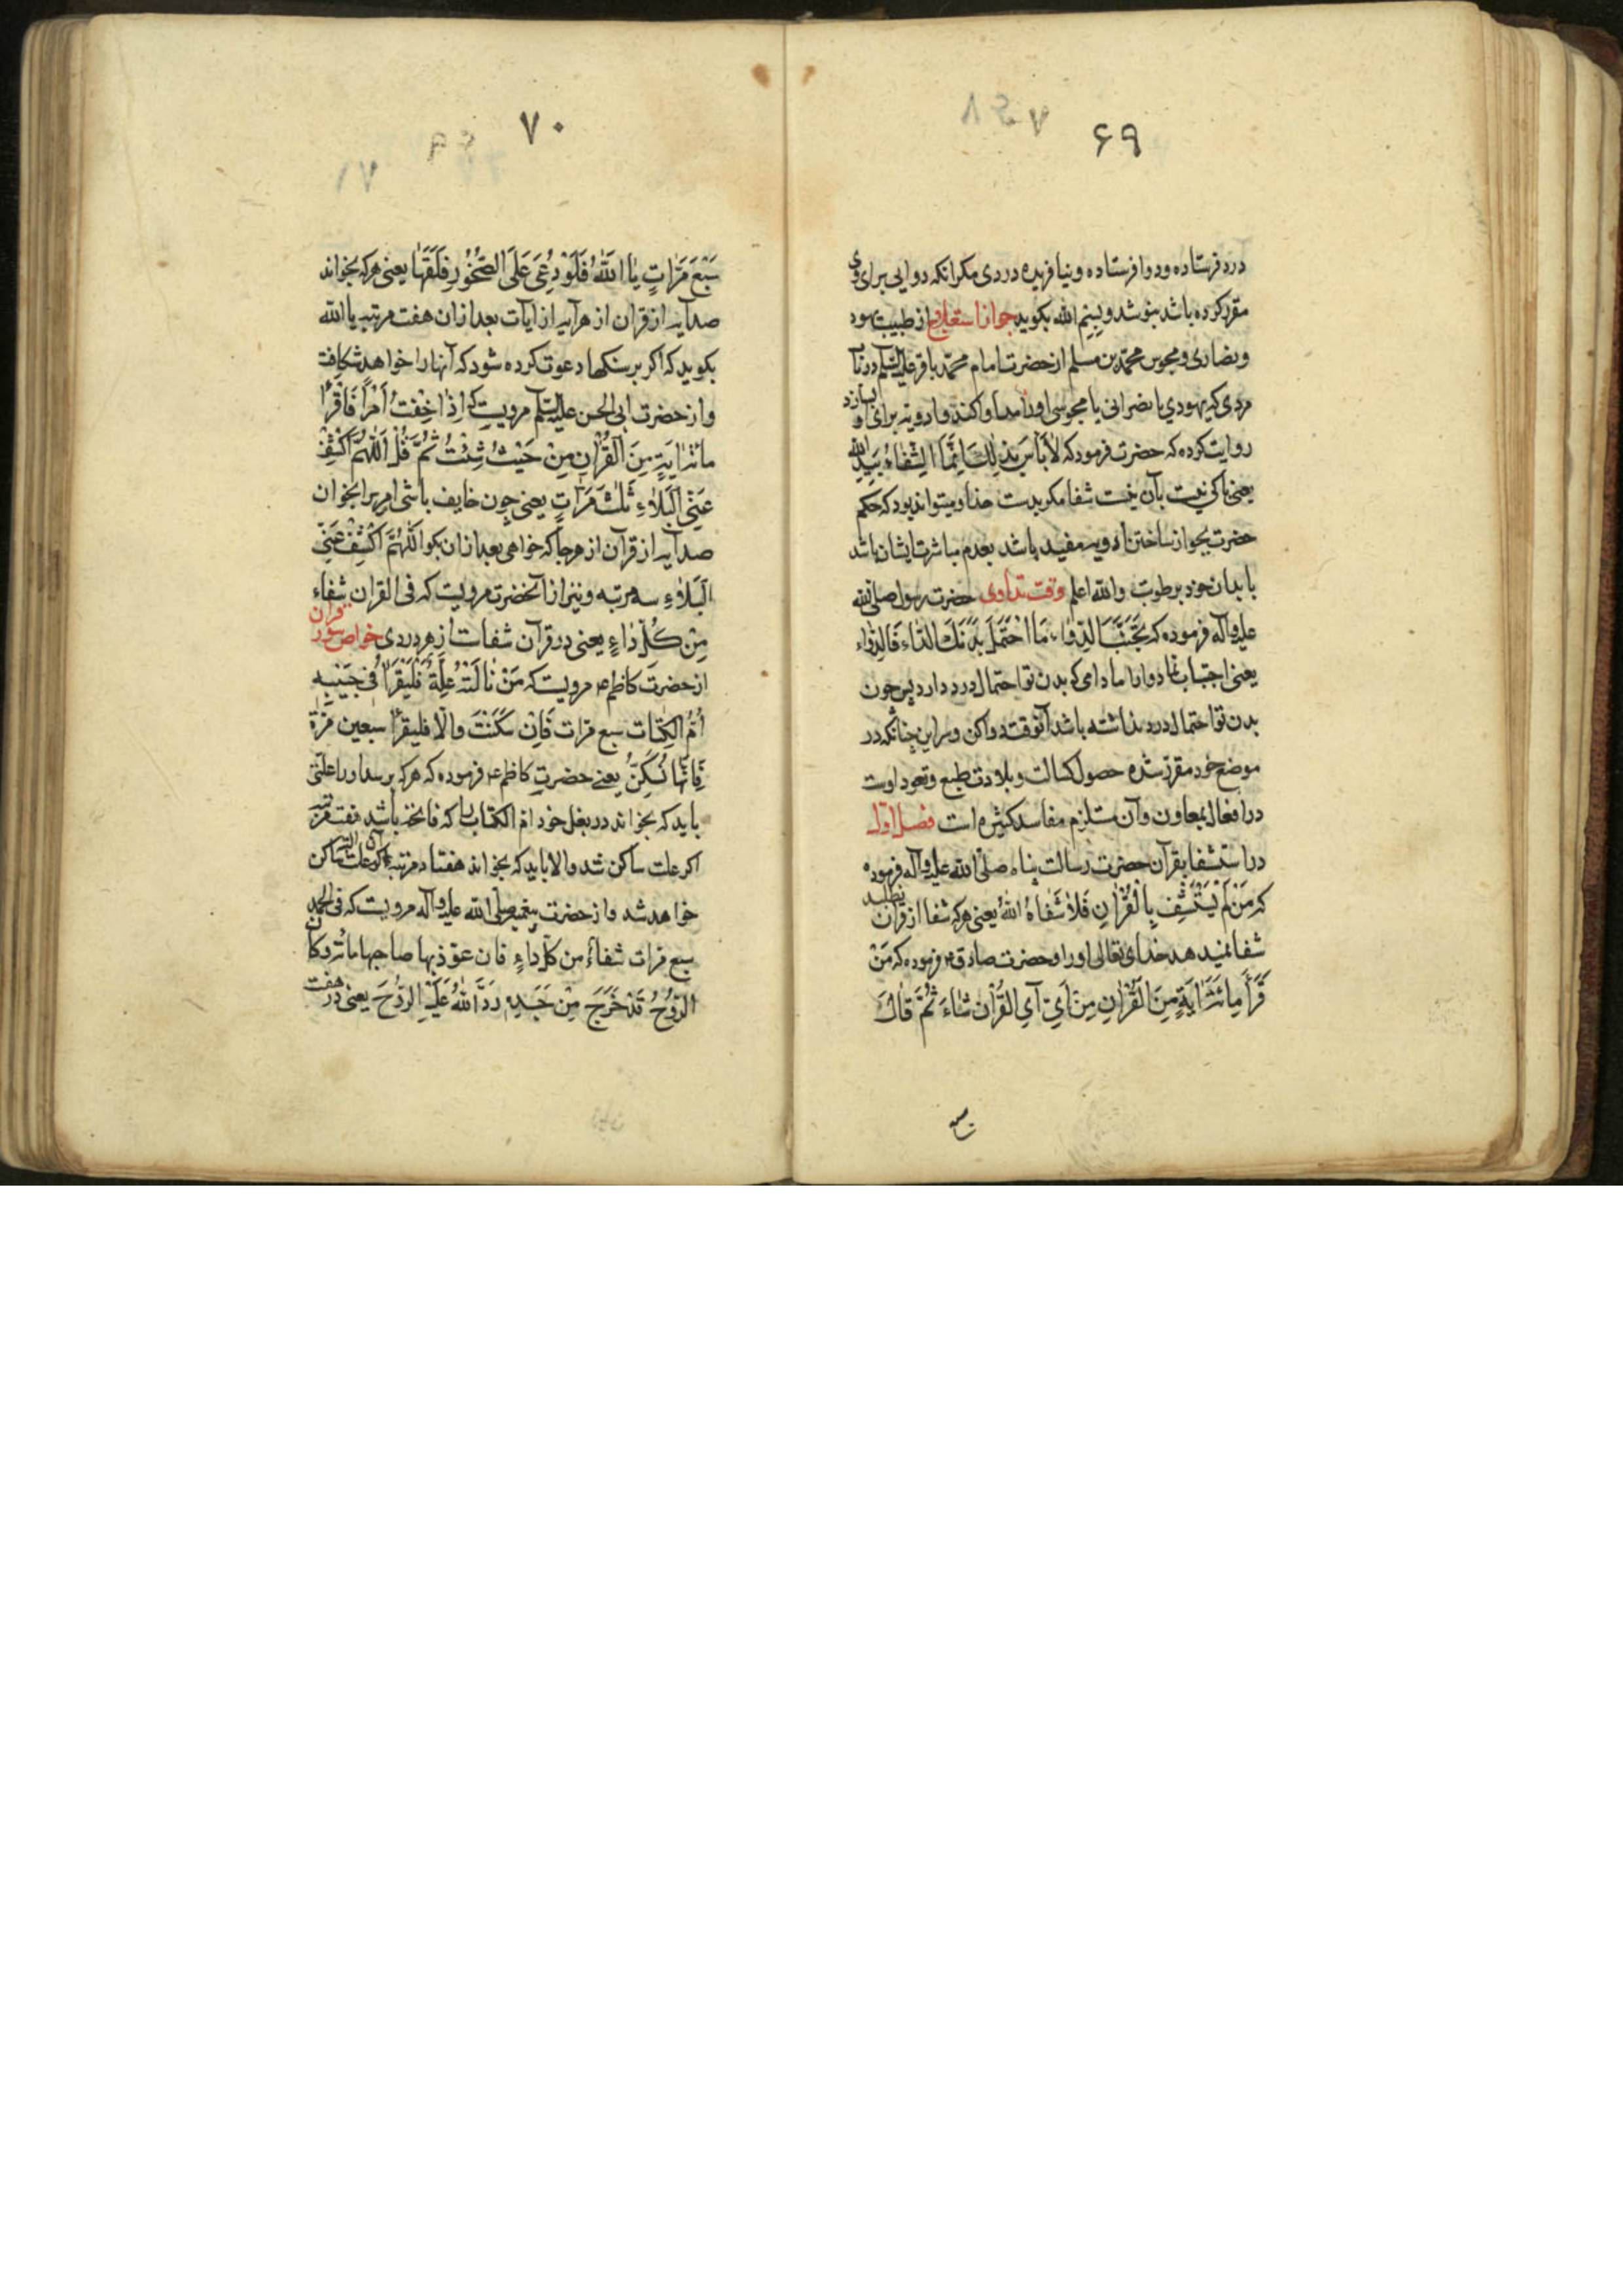 ۶۹
درد فرستاده ودوا فرستاده ونیافریده دردی مکر انکه دوایی برای وی
مقرر کرده باشد بنوشد وبسم الله بکوید جواز استعلاج از طبیب یهود
ونصاری ومجوس محمّد بن مسلم از حضرت امام محمّد باقر علیه السّلم در
مردی که یهودی یا نصرانی یا مجوسی اورا مداوا کند وادویه برای او بسازد
روایت کرده که حضرت فرمود که لاٰبَاْسَ بِذٰلِكَ اِنَّمَا الشِّفٰاءُ بِیَدِ اللّٰهِ
یعنی باکی نیست بآن نیست شفا مکر بدست خدا ومیتواند بود که حکم
حضرت بجواز ساختن ادویه مقید باشد بعدم مباشرت ایشان باشد
با بدان خود برطوبت والله اعلم وقت تداوی حضرت رسول صلی الله
علیه وآله فرموده که تَجَنَّبِ الدَّوٰاءَ مَا احْتَمَلَ بَدَنُكَ الدّٰاءَ فَالدَّوٰاء
یعنی اجتناب نما دوا را مادامی که بدن تو احتمال درد دارد پس چون
بدن تو احتمال درد نداشته باشد آنوقت دوا کن وسر این چنانکه در
موضع خود مقرر شده حصول کسالت وبلادت طبع وتعود اوست
در افعال بمعاون وآن مستلزم مفاسد کثیره است فصل اوّل
در استشفا بقرآن حضرت رسالت پناه صلّی الله علیه وآله فرموده
که مَنْ لَمْ یَسْتَشْفِ بِالْقُرْاٰنِ فَلاٰ شَفٰاهُ اللّٰهُ یعنی هرکه شفا از قرآن نطلبد
شفا نمیدهد خدای تعالی اورا وحضرت صادق ۴ فرموده که مَنْ
قَرَأَ مِائَةَ اٰیَةٍ مِنَ الْقُرْاٰنِ مِنْ اَیِّ آیِ الْقُرْاٰنِ شٰاءَ ثُمَّ قٰالَ
سبع
۷۰
سَبْعَ مَرّٰاتٍ یٰا اَللّٰهُ فَلَوْ دُعِیَ عَلَی الصُّخُورِ فَلَقَهٰا یعنی هرکه بخواند
صد آیه از قران از هر آیه از ایات بعد از ان هفت مرتبه یا الله
بکوید که اکر بر سنکها دعوت کرده شود که آنها را خواهد شکافت
واز حضرت ابی الحسن علیه السّلم مرویست که اِذٰا خِفْتَ اَمْراً فَاقْرَأْ
مائَةَ اٰیَةٍ مِنَ الْقُرْاٰنِ مِنْ حَیْثُ شِئْتَ ثُمَّ قُلْ اَللّٰهُمَّ اکْشِفْ
عَنِّی الْبَلاٰءَ ثَلٰثَ مَرّٰاتٍ یعنی چون خایف باشی امریرا بخوان
صد آیه از قرآن از هرجا که خواهی بعد از ان بکو اَللّٰهُمَّ اکْشِفْ عَنِّی
الْبَلاٰءِ سه مرتبه ونیز از آنحضرت مرویست که فی القران شِفٰاء
مِنْ کُلِّ دٰاءٍ یعنی در قرآن شفاست از هر دردی خواص سور قران
از حضرت کاظم ۴ مرویست که مَنْ نٰالَتْهُ عِلَّةٌ فَلْیَقْرَأْ فی جَیْبِهِ
اُمَّ الْکِتٰاب سبع مرات فَاِنْ سَکَنَتْ والّا فلیقرأ سَبعین مَرَّةً
فَاِنَّهٰا تُسَکِّنُ یعنی حضرت کاظم ۴ فرموده که هرکه برسد اورا علّتی
باید که بخواند در بغل خود امّ الکتاب را که فاتحه باشد هفت مرتبه
اکر علت ساکن شد والا باید که بخواند هفتاد مرتبه که علت ساکن
خواهد شد واز حضرت پیغمبر صلی الله علیه وآله مرویست که فی الحمد
سبع مرات شفاءٌ من کلّ داءٍ فان عوّذ بها صاحبها مائة مرة وکان
الرّوُحُ قَدْ خَرَجَ مِنْ جَسَدِهِ رَدَّ اللّٰهُ عَلَیْهِ الرُّوحَ یعنی در هفت